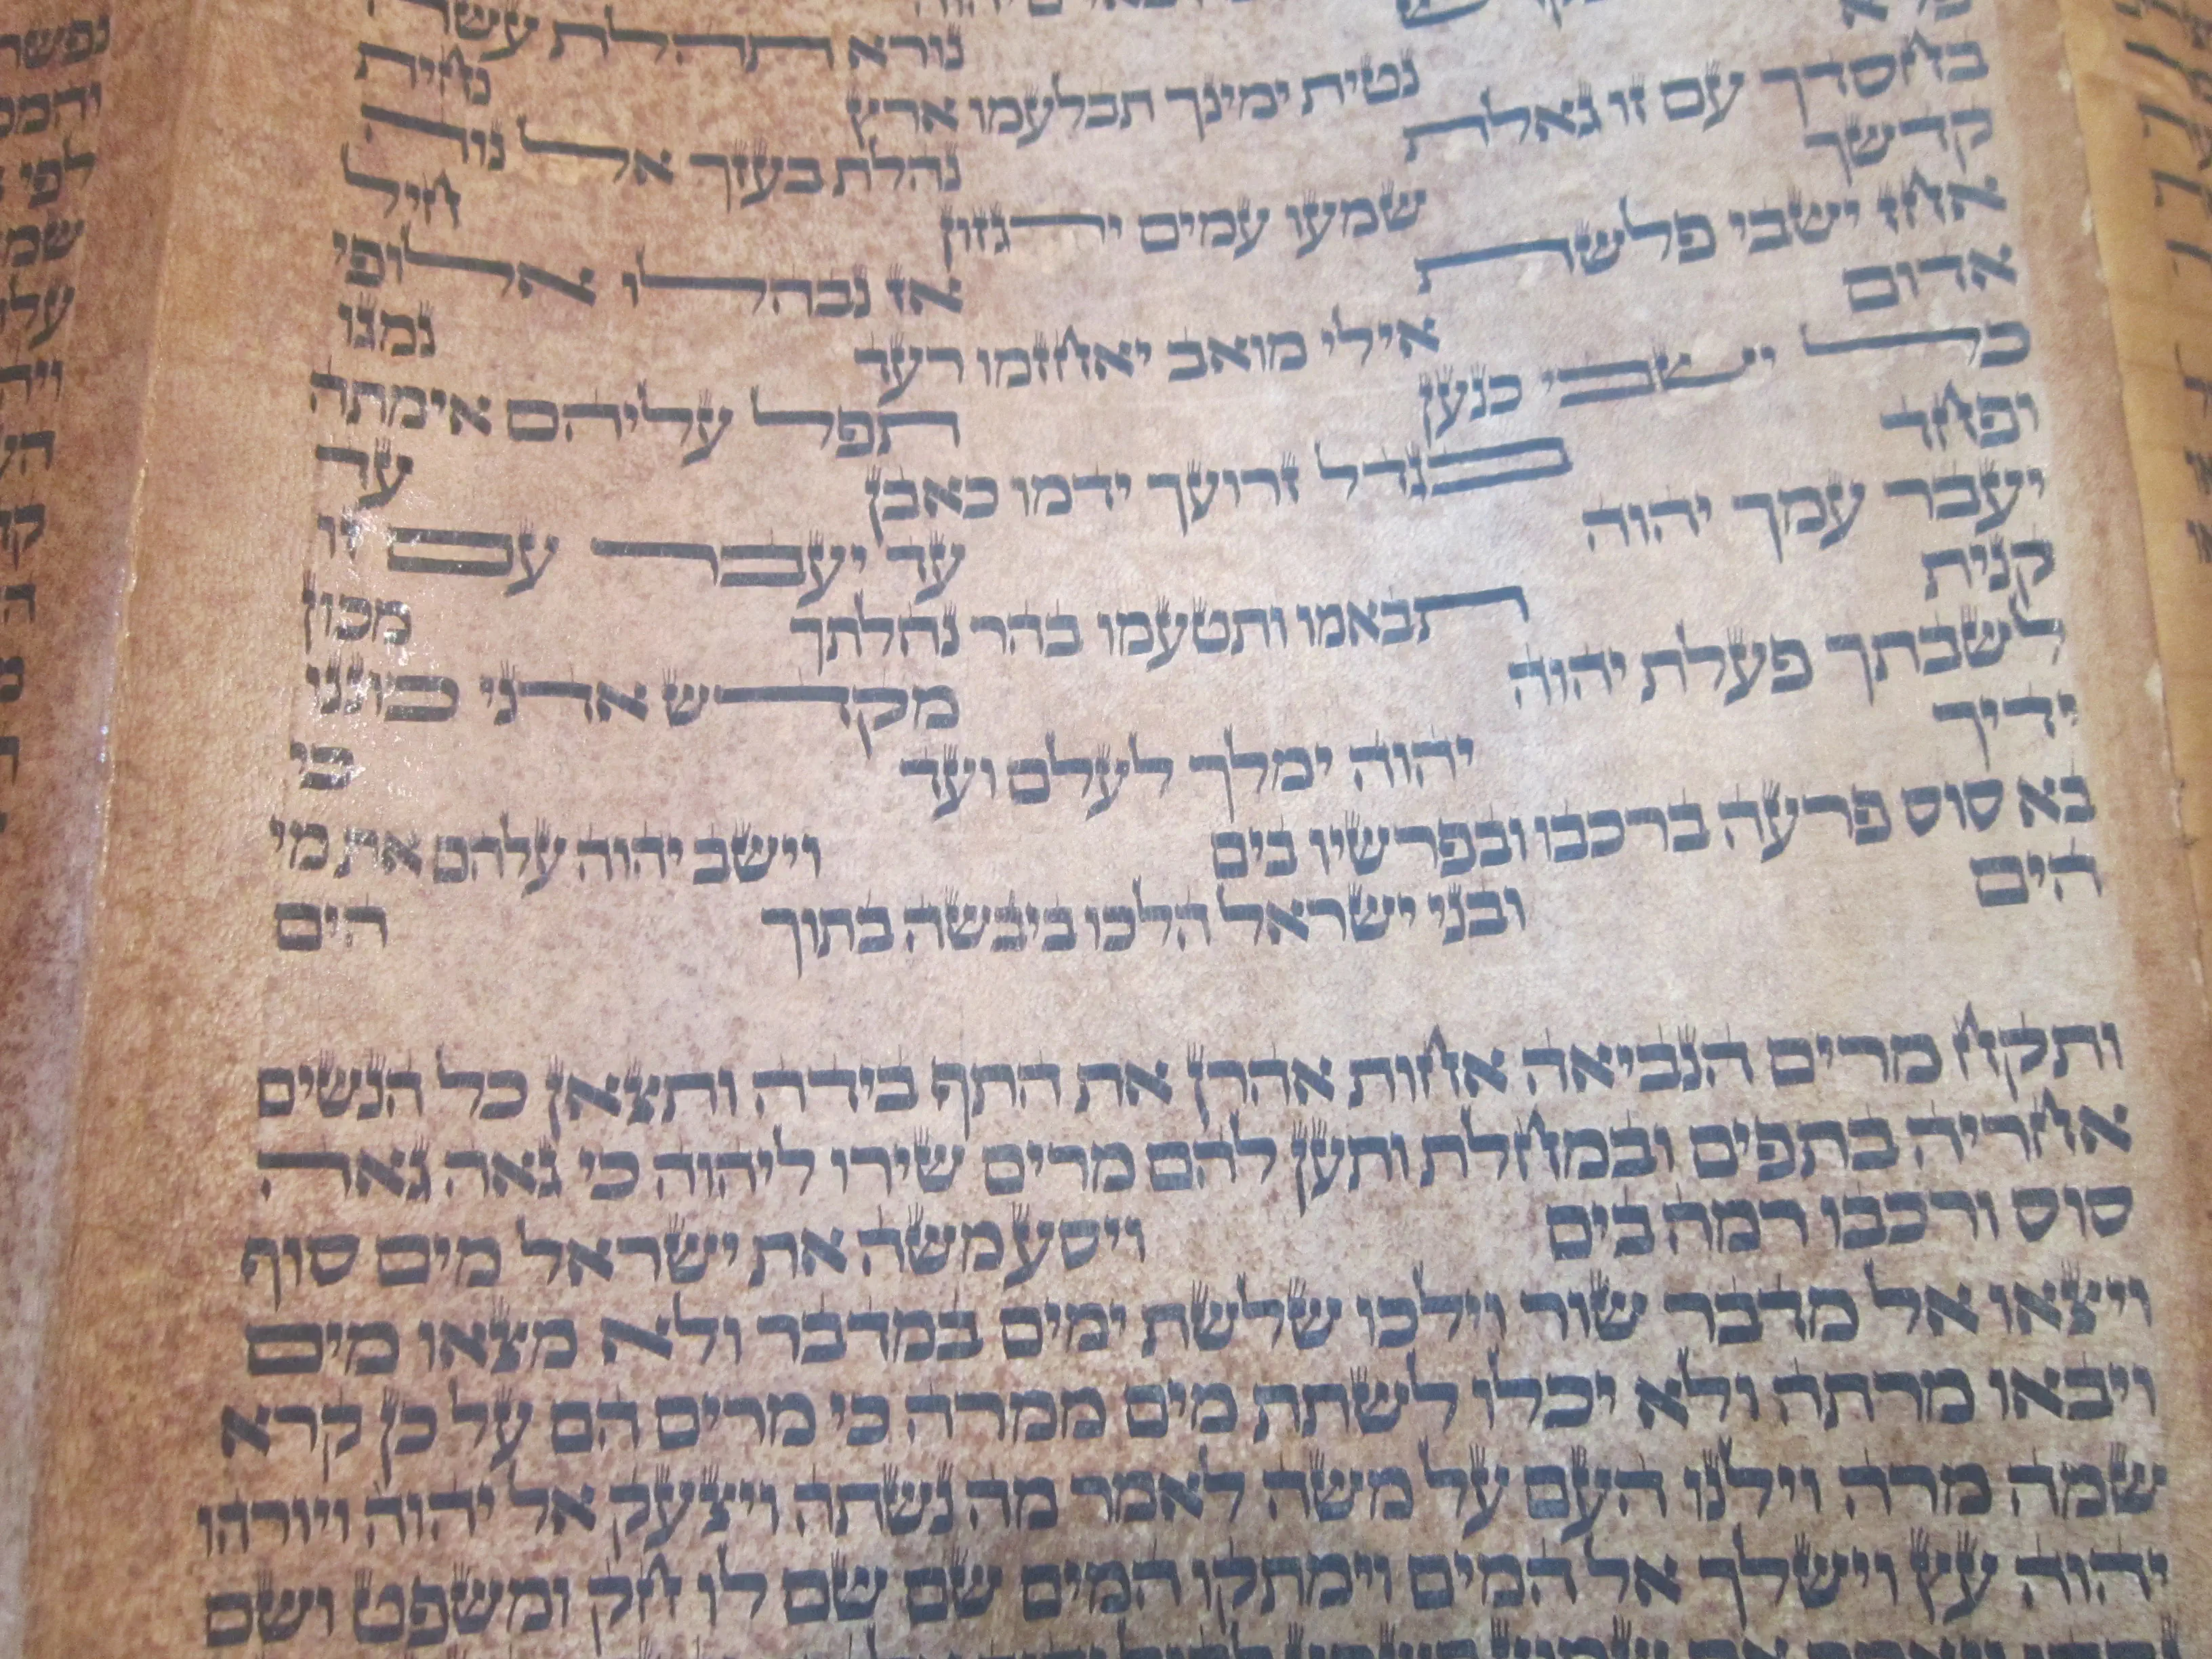 נורא תהלת עשה
נטית ימינך תבלעמו ארץ נחית
בחסדך עם זו גאלת נהלת בעזך אל נוה
קדשך שמעו עמים ירגזון חיל
אחז ישבי פלשת אז נבהלו אלופי
אדום אילי מואב יאחזמו רעד נמגו
כל ישבי כנען תפל עליהם אימתה
ופחד בגדל זרועך ידמו כאבן עד
יעבר עמך יהוה עד יעבר עם זו
קנית תבאמו ותטעמו בהר נחלתך מכון
לשבתך פעלת יהוה מקדש אדני כוננו
ידיך יהוה ימלך לעלם ועד כי
בא סוס פרעה ברכבו ובפרשיו בים וישב יהוה עלהם את מי
הים ובני ישראל הלכו ביבשה בתוך הים
ותקח מרים הנביאה אחות אהרן את התף בידה ותצאן כל הנשים
אחריה בתפים ובמחלת ותען להם מרים שירו ליהוה כי גאה גאה
סוס ורכבו רמה בים ויסע משה את ישראל מים סוף
ויצאו אל מדבר שור וילכו שלשת ימים במדבר ולא מצאו מים
ויבאו מרתה ולא יכלו לשתת מים ממרה כי מרים הם על כן קרא
שמה מרה וילנו העם על משה לאמר מה נשתה ויצעק אל יהוה ויורהו
יהוה עץ וישלך אל המים וימתקו המים שם שם לו חק ומשפט ושם